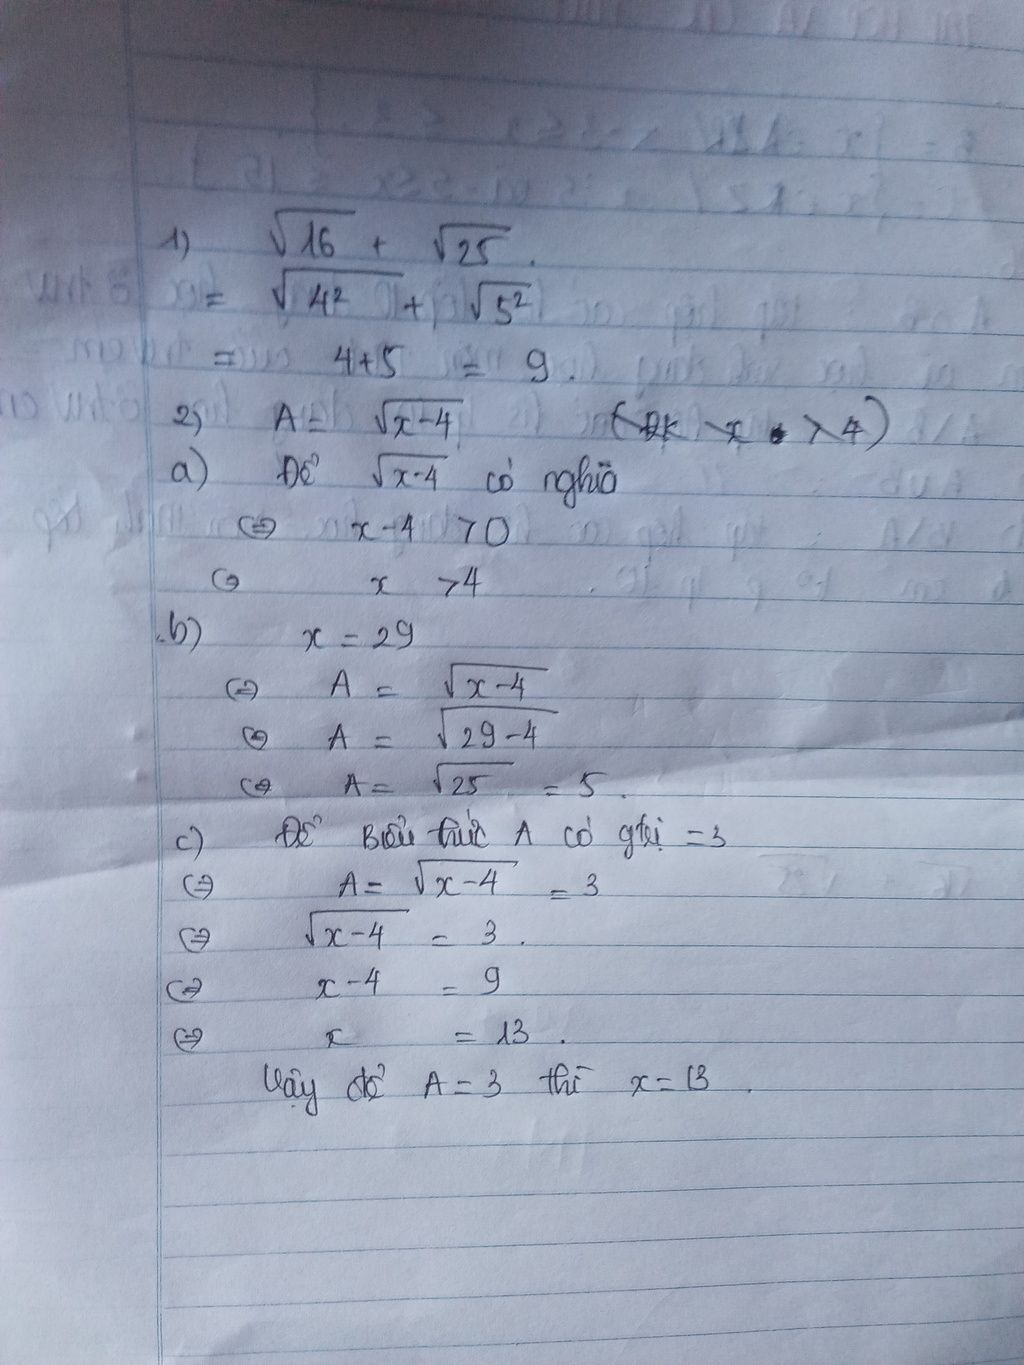 1) √16 + √25.
= √4² + √5²
= 4+5 = 9.
2) A = √x-4 (ĐK x > 4)
a) Để √x-4 có nghĩa
(=) x-4 > 0
(=) x > 4
b) x = 29
(=) A = √x-4
(=) A = √29-4
(=) A = √25 = 5.
c) Để Biểu thức A có gtrị = 3
(=) A = √x-4 = 3
(=) √x-4 = 3.
(=) x-4 = 9
(=) x = 13.
Vậy để A = 3 thì x = 13.